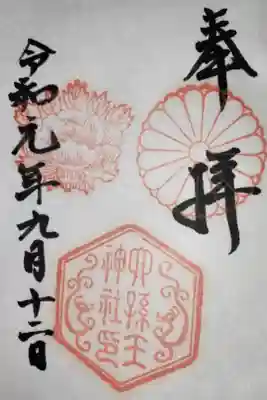 奉拝
六孫王
神社印
令和元年九月十二日